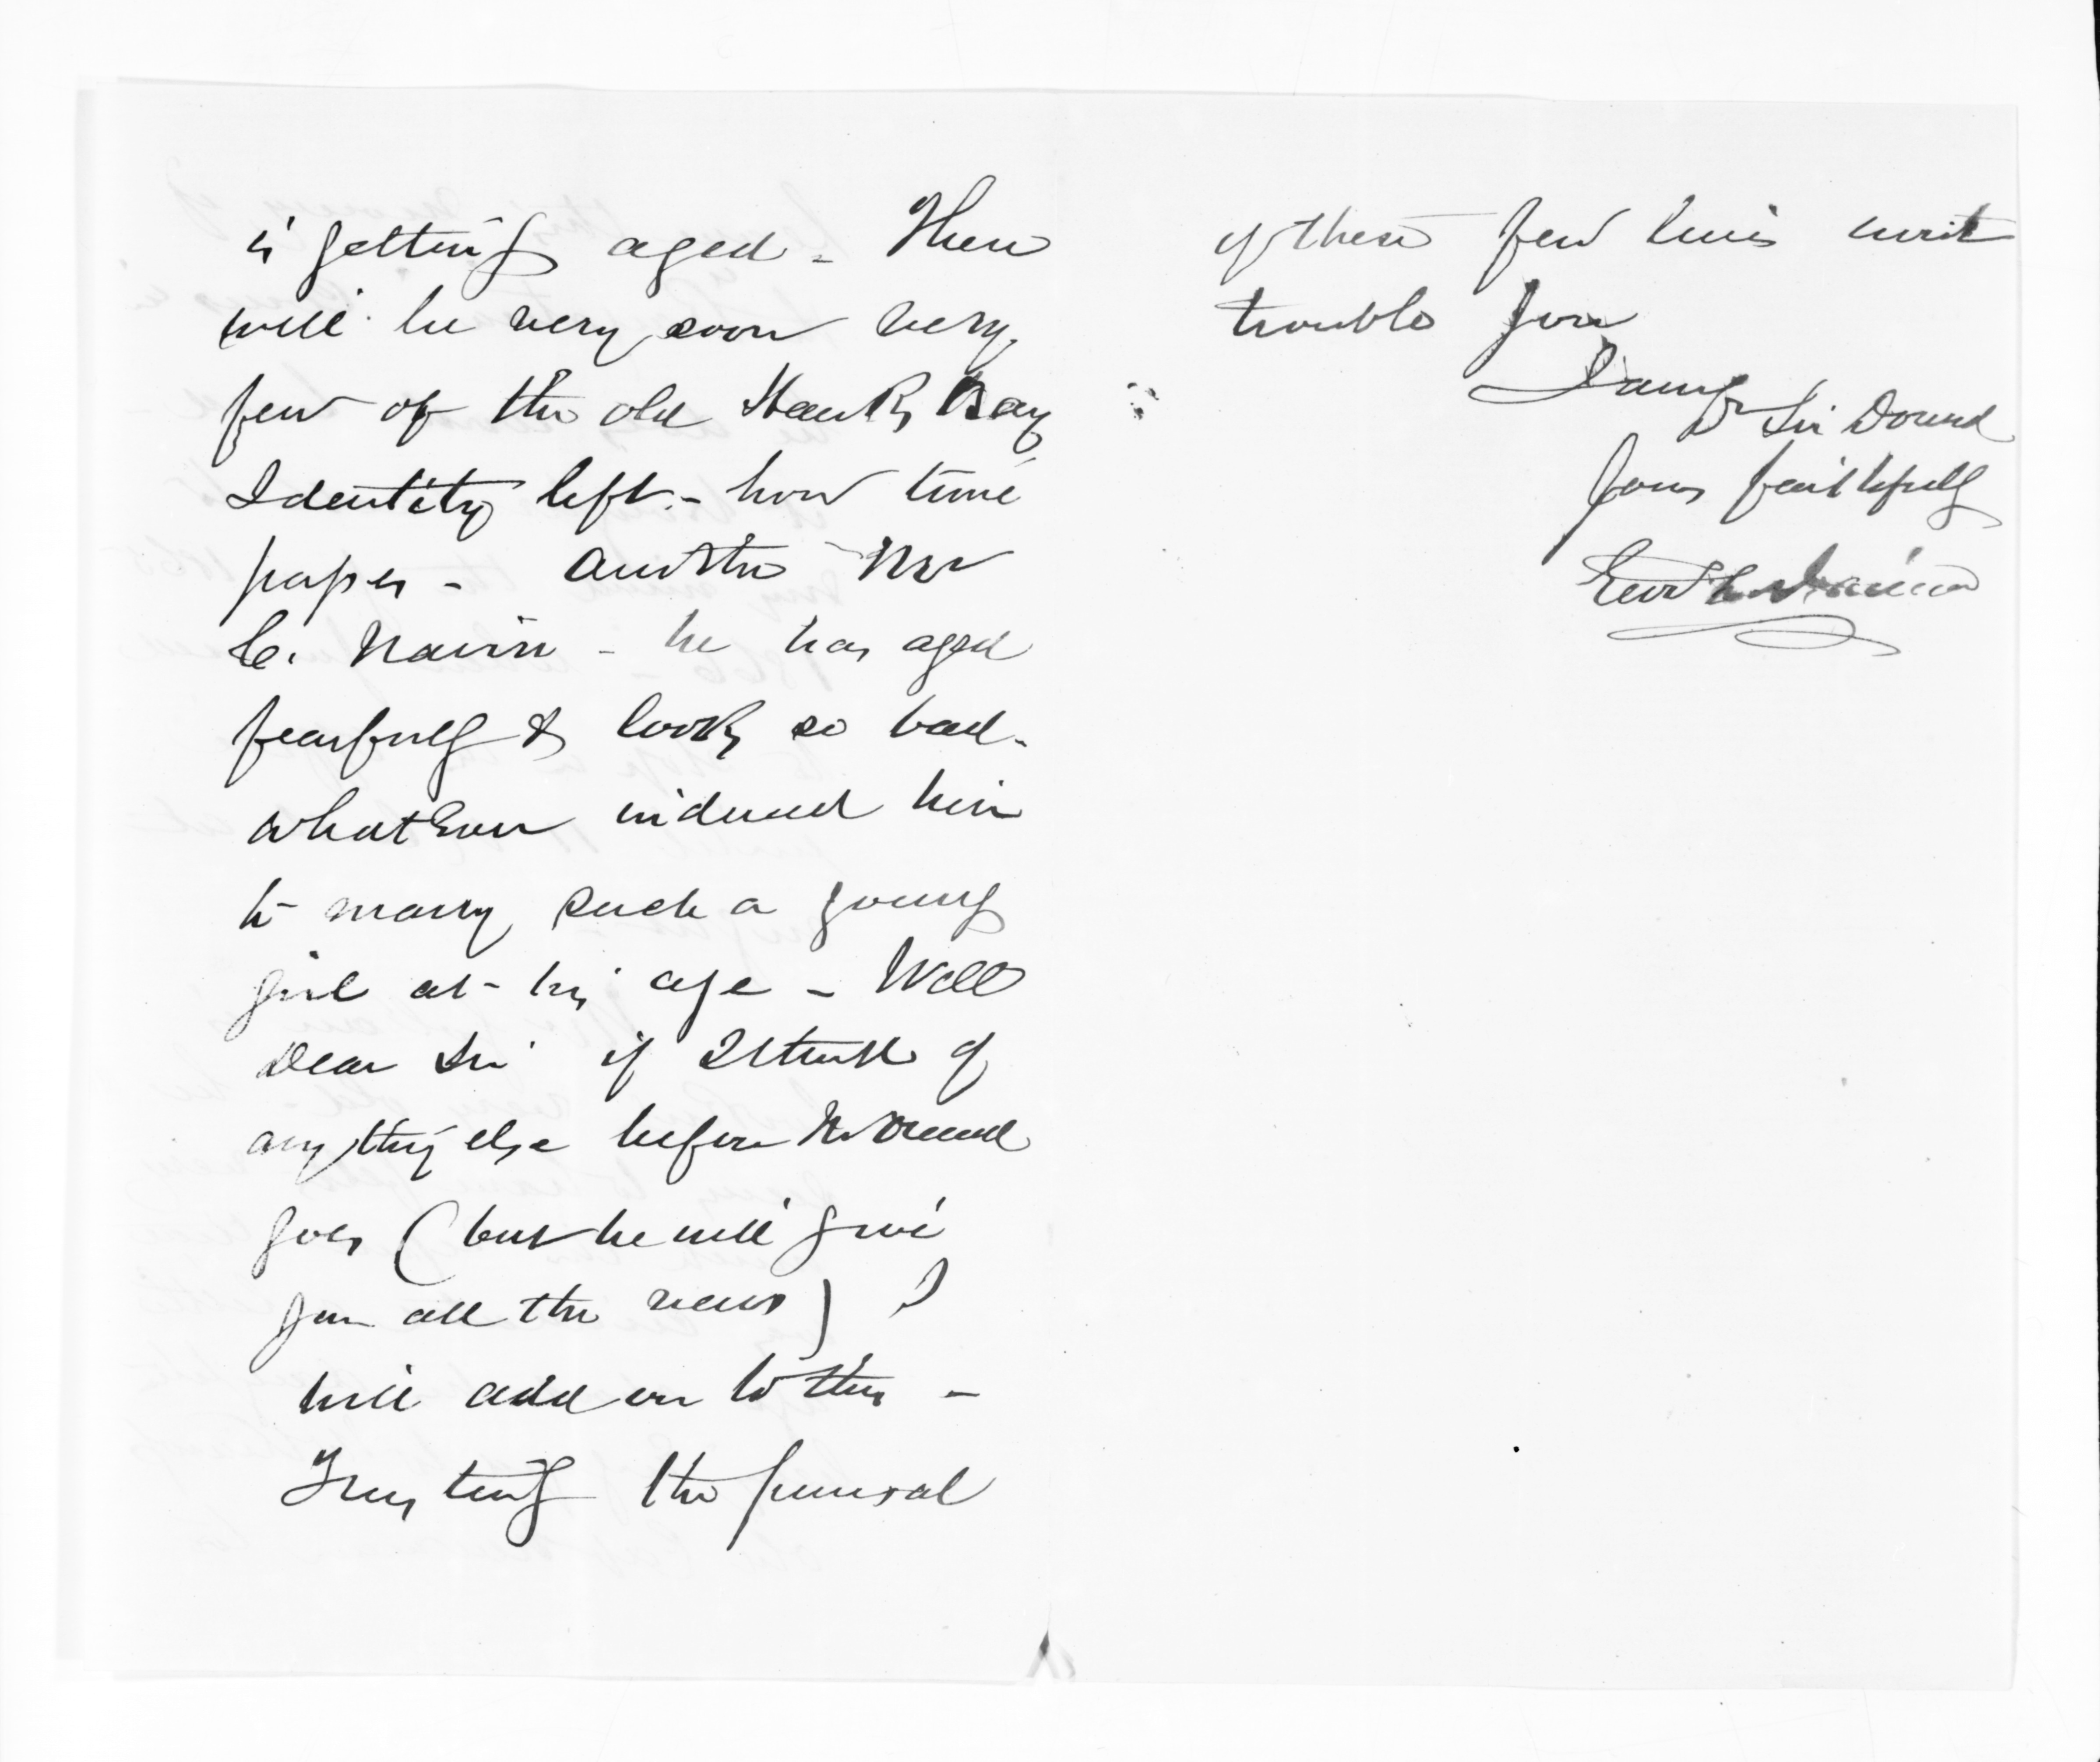 is getting aged - There
will be very soon very
few of the old Hawks Bay
Identity left - how time
passes - Another Mr
C. Nairn - he has aged
fearfully & looks so bad -
whatever induced him
to marry such a young
girl at his age - Well
Dear Sir if I think of
anything else before
goes (but he will give
you all the news) I
will add on to this -
Trusting the perusal
of these few lines wont
trouble you
Sir Donald
Yours faithfully